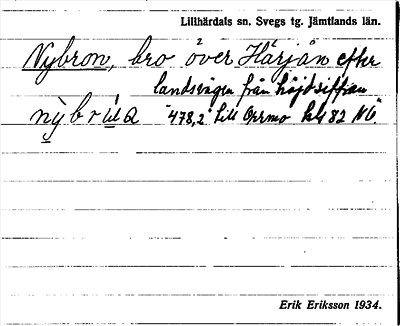 Lillhärdals sn. Svegs tg. Jämtlands län.
Nybron, bro över Härjån efter
landsvägen från höjdsiffran
nỳbrùa "478,2" till Orrmo kbl 82 NV.
Erik Eriksson 1934.